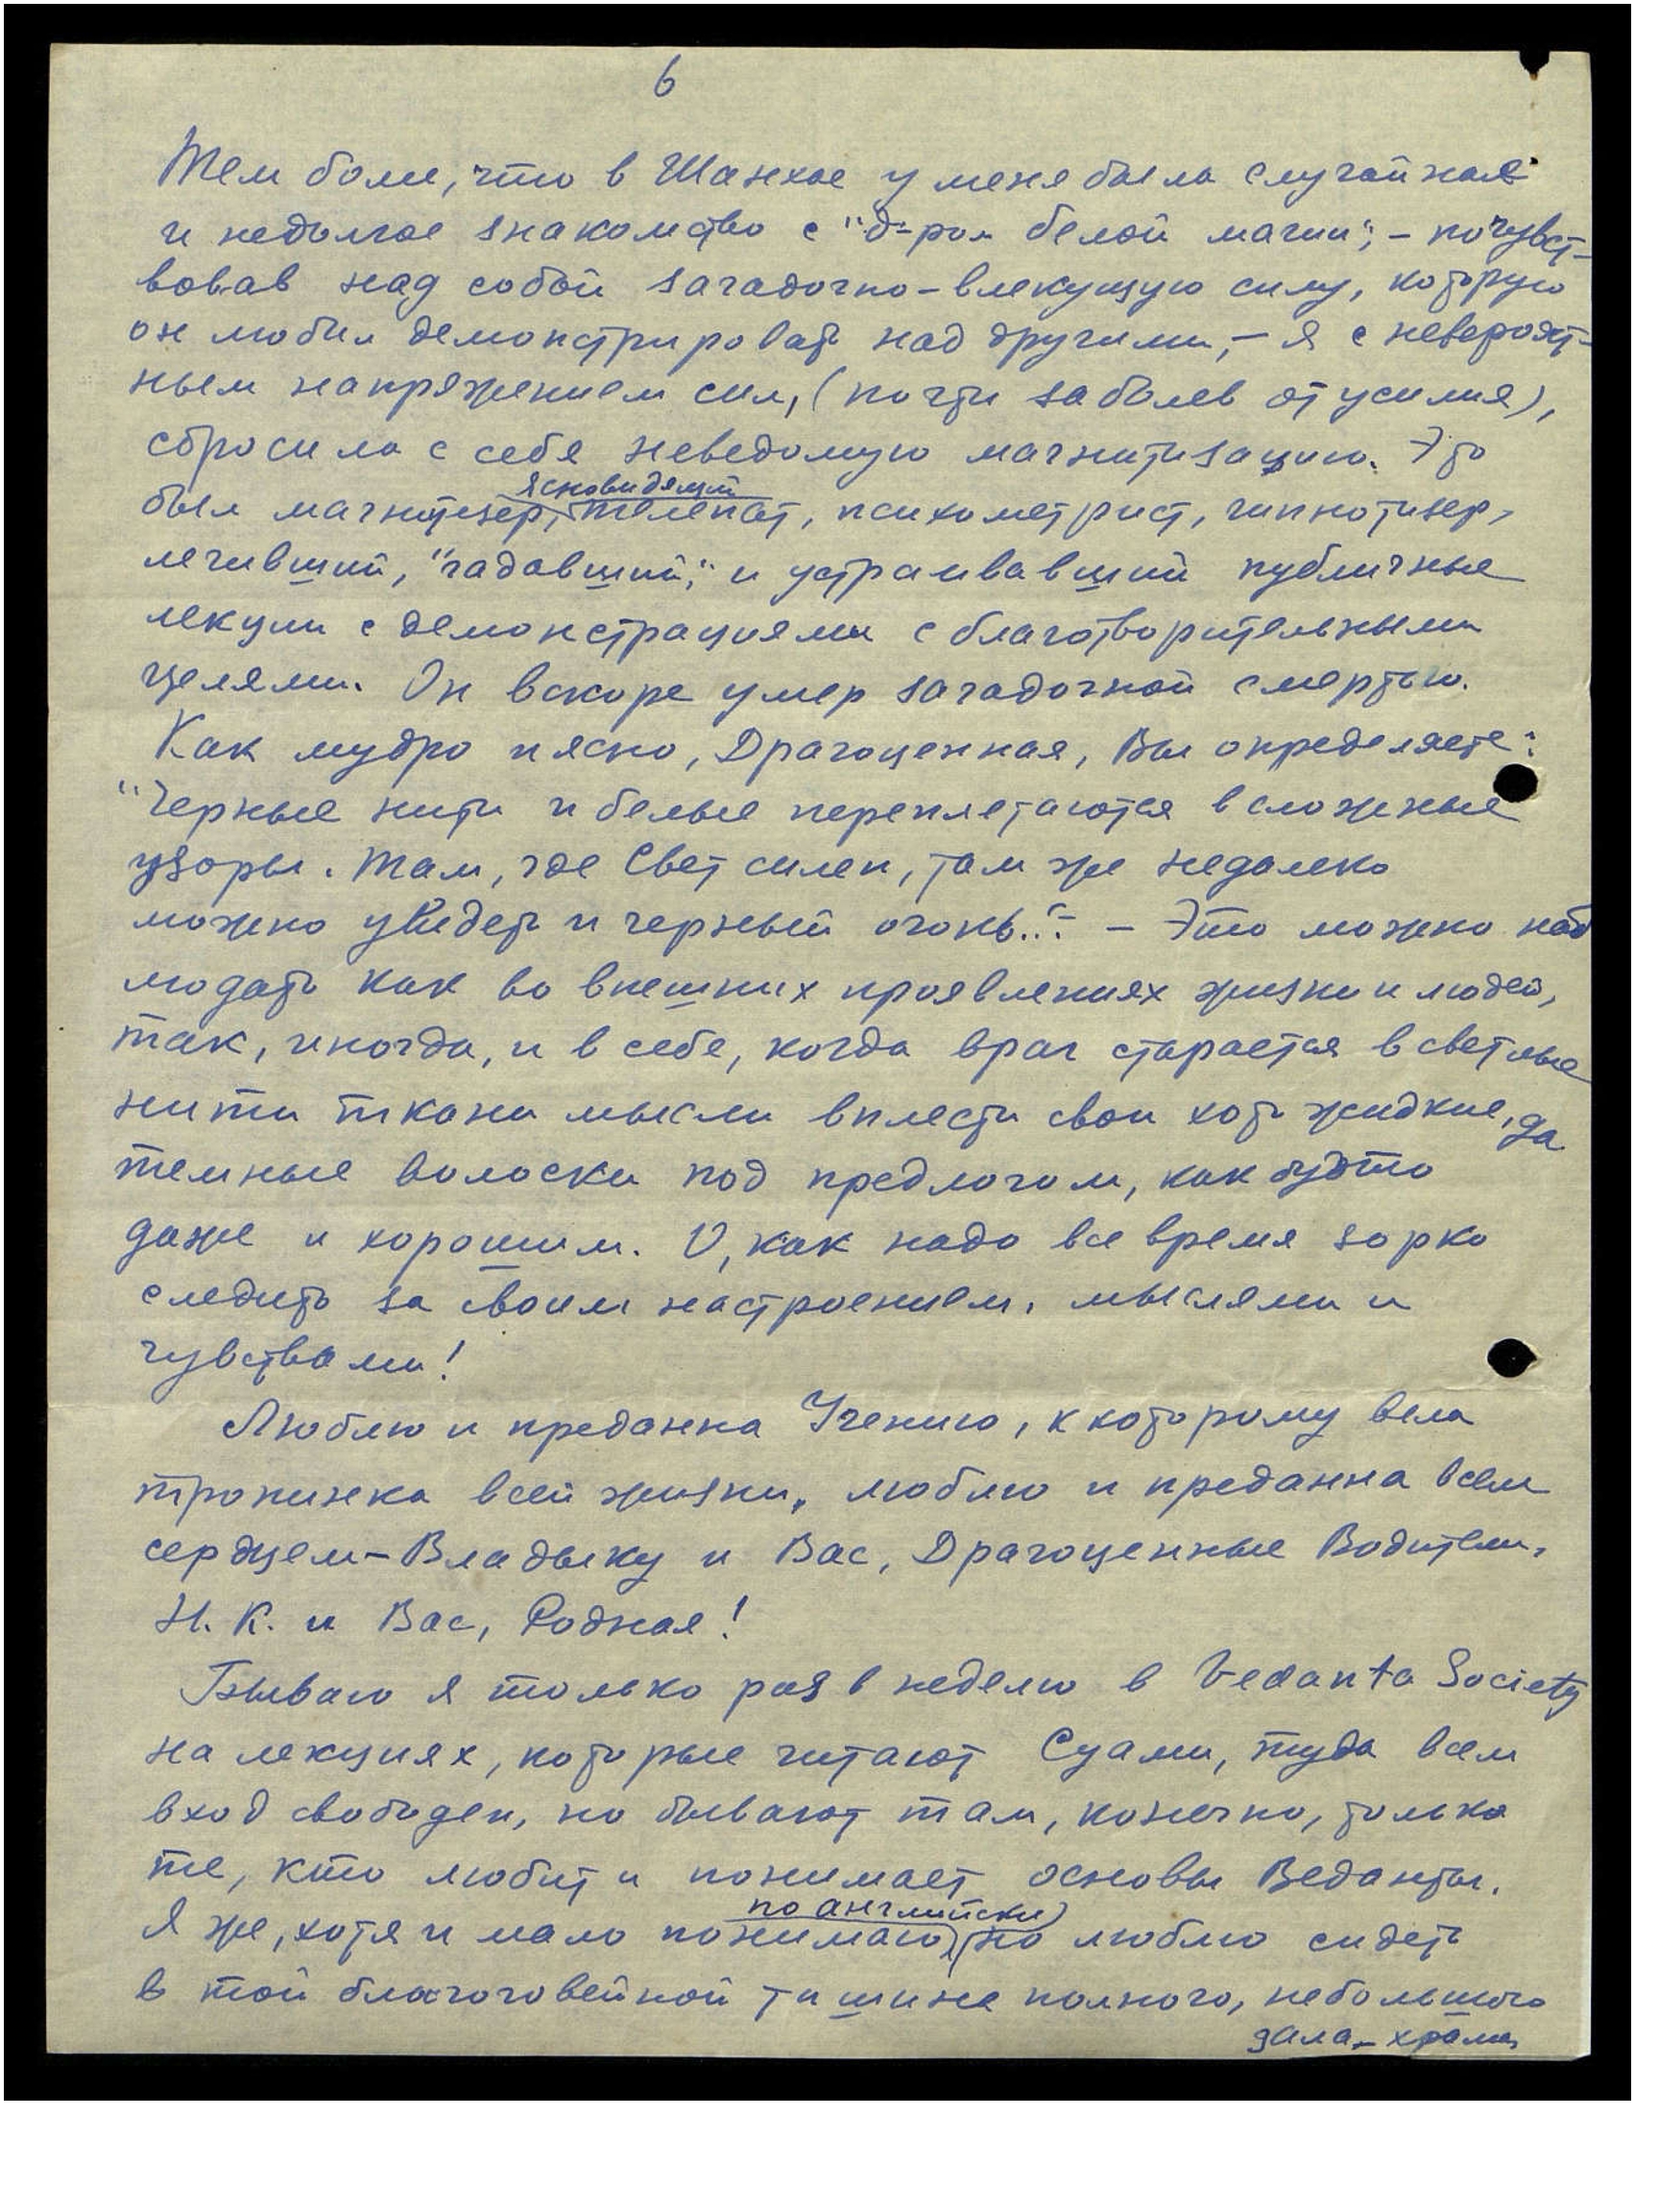 6
Тем более, что в Шанхае у меня было случайное
и недолгое знакомство с "д-ром белой магии", – почувст-
вовав над собой загадочно-влекущую силу, которую
он любил демонстрировать над другими, – я с невероят-
ным напряжением сил, (почти заболев от усилия),
сбросила с себя неведомую магнитизацию. Это
ясновидящий
был магнитизер, телепат, психометрист, гипнотизер,
лечивший, "гадавший," и устраивавший публичные
лекции с демонстрациями с благотворительными
целями. Он вскоре умер загадочной смертью.
Как мудро и ясно, Драгоценная, Вы определяете:
"Черные нити и белые переплетаются в сложные
узоры. Там, где Свет силен, там же недалеко
можно увидеть и черный огонь.." – Это можно наб
людать как во внешних проявлениях жизни и людей,
так, иногда, и в себе, когда враг старается в светлые
нити ткани мысли вплести свои хоть жидкие, да
темные волоски под предлогом, как будто
даже и хорошим. О, как надо все время зорко
следить за своим настроением, мыслями и
чувствами!
Люблю и преданна Учению, к которому вела
тропинка всей жизни, люблю и преданна всем
сердцем – Владыку и Вас, Драгоценные Водители,
Н. К. и Вас, Родная!
Бываю я только раз в неделю в Vedanta Society
на лекциях, которые читают Суами, туда всем
вход свободен, но бывают там, конечно, только
те, кто любит и понимает основы Веданты.
по английски)
Я же, хотя и мало понимаю, (но люблю сидеть
в той благоговейной тишине полного, небольшого
зала-храма